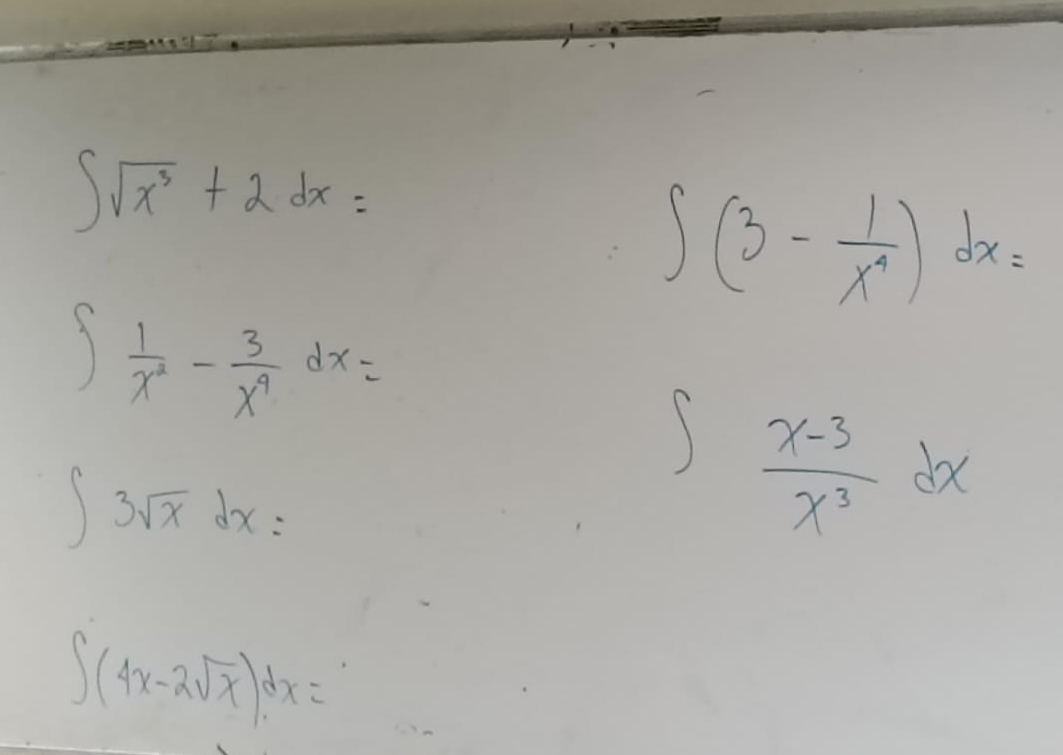 ∫√x³ + 2 dx =
∫ 1/x² - 3/x⁴ dx =
∫ 3√x dx =
∫(4x-2√x)dx =
∫(3 - 1/x⁴) dx =
∫ x-3/x³ dx